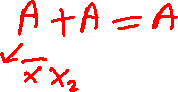 A + A = A
x̄ x₂